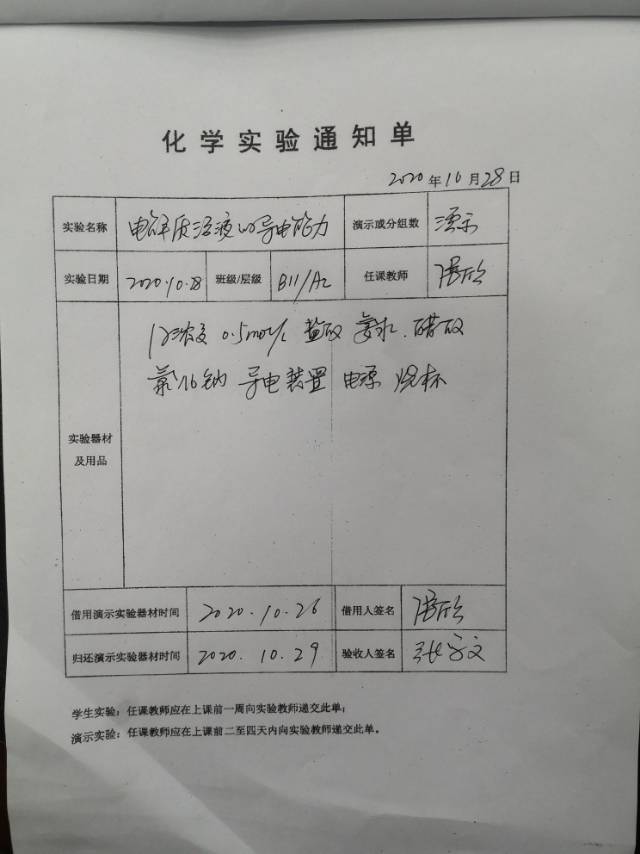 化学实验通知单
2020年10月28日
实验名称 电解质溶液的导电能力 演示或分组数 演示
实验日期 2020.10.28 班级/层级 B11/A2 任课教师
实验器材及用品
浓度 0.5mol/L 盐酸 氨水.醋酸
氯化钠 导电装置 电源 烧杯
借用演示实验器材时间 2020.10.26 借用人签名
归还演示实验器材时间 2020.10.29 验收人签名
学生实验：任课教师应在上课前一周向实验教师递交此单；
演示实验：任课教师应在上课前二至四天内向实验教师递交此单。